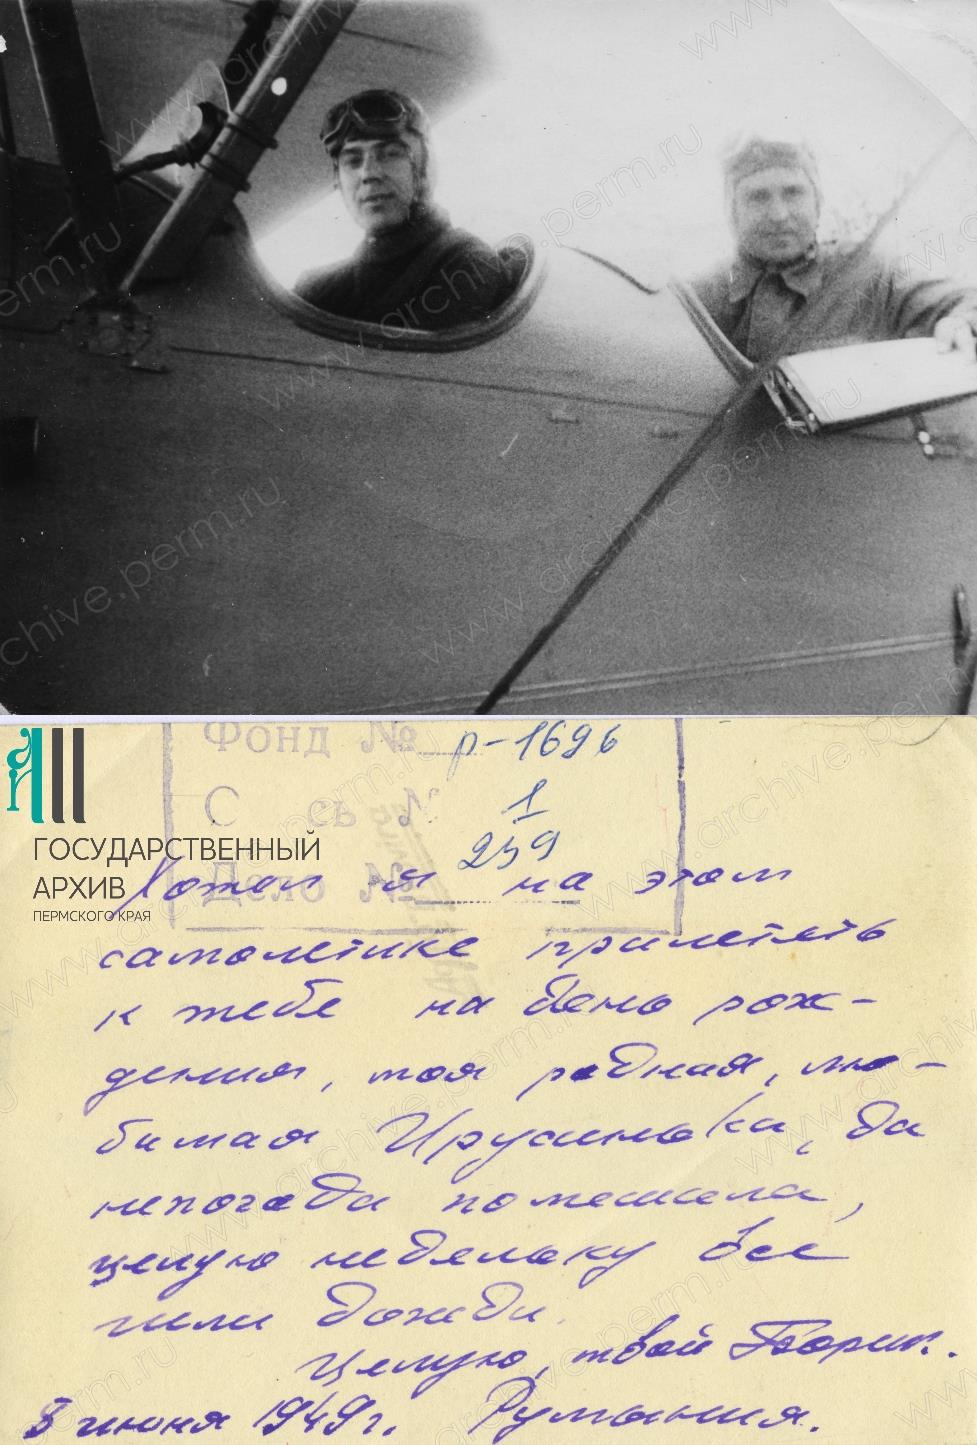 Фонд № р-1696
С сь № 1
Дело № 259
ГОСУДАРСТВЕННЫЙ
АРХИВ
ПЕРМСКОГО КРАЯ
Хотел я на этом
самолетике прилететь
к тебе на день рож-
дения, моя родная, лю-
бимая Ирусинька, да
непогода помешала,
целую недельку все
лили дожди.
Целую, твой Борик.
8 июня 1949 г. Румыния.
www.archive.perm.ru